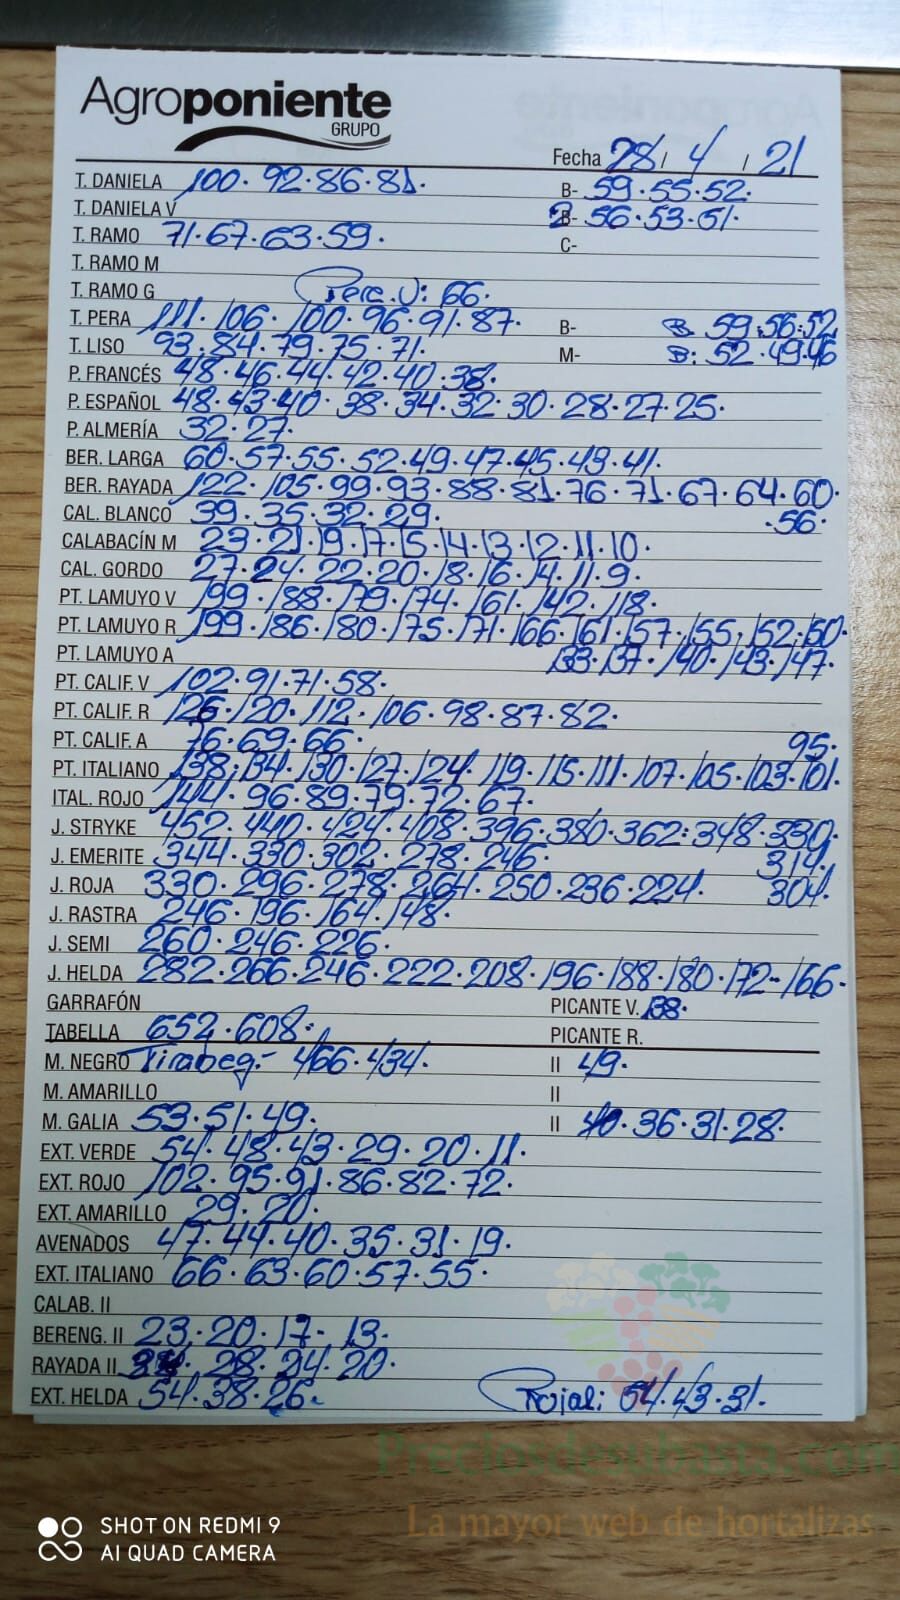 Agroponiente
GRUPO
Fecha 28 / 4 / 21
T. DANIELA 100. 92. 86. 81. B- 59. 55. 52.
T. DANIELA V 56. 53. 51.
T. RAMO 71. 67. 63. 59. C-
T. RAMO M
T. RAMO G Pera. V: 66.
T. PERA 111. 106. 100. 96. 91. 87. B- B 59. 56. 52
T. LISO 93. 84. 79. 75. 71. M- B: 52. 49. 46
P. FRANCÉS 48. 46. 44. 42. 40. 38.
P. ESPAÑOL 48. 43. 40. 38. 34. 32. 30. 28. 27. 25.
P. ALMERÍA 32. 27.
BER. LARGA 60. 57. 55. 52. 49. 47. 45. 43. 41.
BER. RAYADA 122. 105. 99. 93. 88. 81. 76. 71. 67. 64. 60.
CAL. BLANCO 39. 35. 32. 29. .56.
CALABACÍN M 23. 21. 19. 17. 15. 14. 13. 12. 11. 10.
CAL. GORDO 27. 24. 22. 20. 18. 16. 14. 11. 9.
PT. LAMUYO V 199. 188. 179. 174. 161. 142. 118.
PT. LAMUYO R 199. 186. 180. 175. 171. 166. 161. 157. 155. 152. 150.
PT. LAMUYO A 133. 137. 140. 143. 147.
PT. CALIF. V 102. 91. 71. 58.
PT. CALIF. R 126. 120. 112. 106. 98. 87. 82.
PT. CALIF. A 76. 69. 66. 95.
PT. ITALIANO 138. 134. 130. 127. 124. 119. 115. 111. 107. 105. 103. 101.
ITAL. ROJO 144. 96. 89. 79. 72. 67.
J. STRYKE 452. 440. 424. 408. 396. 380. 362. 348. 330.
J. EMERITE 344. 330. 302. 278. 246. 314.
J. ROJA 330. 296. 278. 264. 250. 236. 224. 304.
J. RASTRA 246. 196. 164. 148.
J. SEMI 260. 246. 226.
J. HELDA 282. 266. 246. 222. 208. 196. 188. 180. 172- 166.
GARRAFÓN PICANTE V. 138.
TABELLA 652. 608. PICANTE R.
M. NEGRO Tirabeq.- 466. 434. II 49.
M. AMARILLO II
M. GALIA 53. 51. 49. II 40. 36. 31. 28.
EXT. VERDE 54. 48. 43. 29. 20. 11.
EXT. ROJO 102. 95. 91. 86. 82. 72.
EXT. AMARILLO 29. 20.
AVENADOS 47. 44. 40. 35. 31. 19.
EXT. ITALIANO 66. 63. 60. 57. 55.
CALAB. II
BERENG. II 23. 20. 17- 13.
RAYADA II 28. 24. 20.
EXT. HELDA 54. 38. 26. Rojal: 54. 43. 31.
Preciosdesubasta.com
La mayor web de hortalizas
SHOT ON REDMI 9
AI QUAD CAMERA